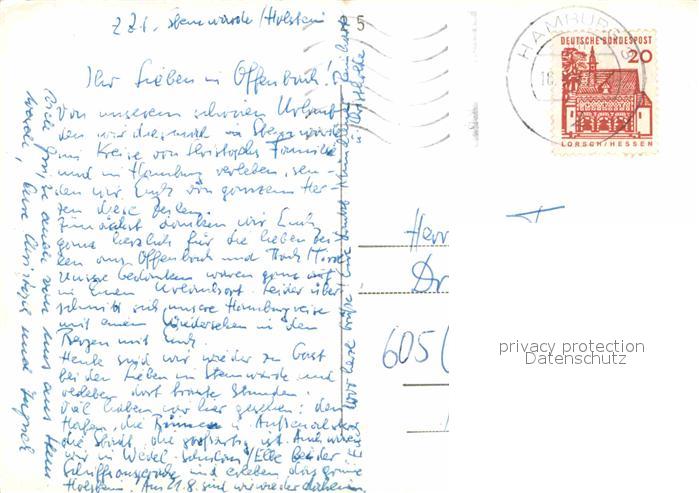 z. Zt. Stenwarde/Holstein
5
Ihr Lieben in Offenbach!
Von unserem schönen Urlaub,
den wir diesmal in Stenwarde
im Kreise von Christophs Familie
und in Hamburg verleben, sen-
den wir Euch von ganzem Her-
zen diese Zeilen.
Zunächst danken wir Euch
ganz herzlich für die lieben Zei-
len aus Offenbach und
Unsere Gedanken waren ganz oft
in Eurem Urlaubsort. Leider über-
schnitt sich unsere Hamburgreise
mit einem Wiedersehen in den
Bergen mit Euch.
Heute sind wir wieder zu Gast
bei den Lieben in Stenwarde und
verleben dort bunte Stunden.
Viel haben wir hier gesehen: den
Hafen, die Binnen u. Außenalster,
die Stadt, die großartig ist. Auch waren
wir in Wedel Schulau/Elbe bei der
Schiffsansage und erleben das ganze
Holstein. Am 21.8. sind wir wieder daheim.
Viele Grüße auch von uns aus
Eure Christoph und
Herrn
Dr.
605(
HAMBURG
DEUTSCHE BUNDESPOST
20
LORSCH/HESSEN
privacy protection
Datenschutz